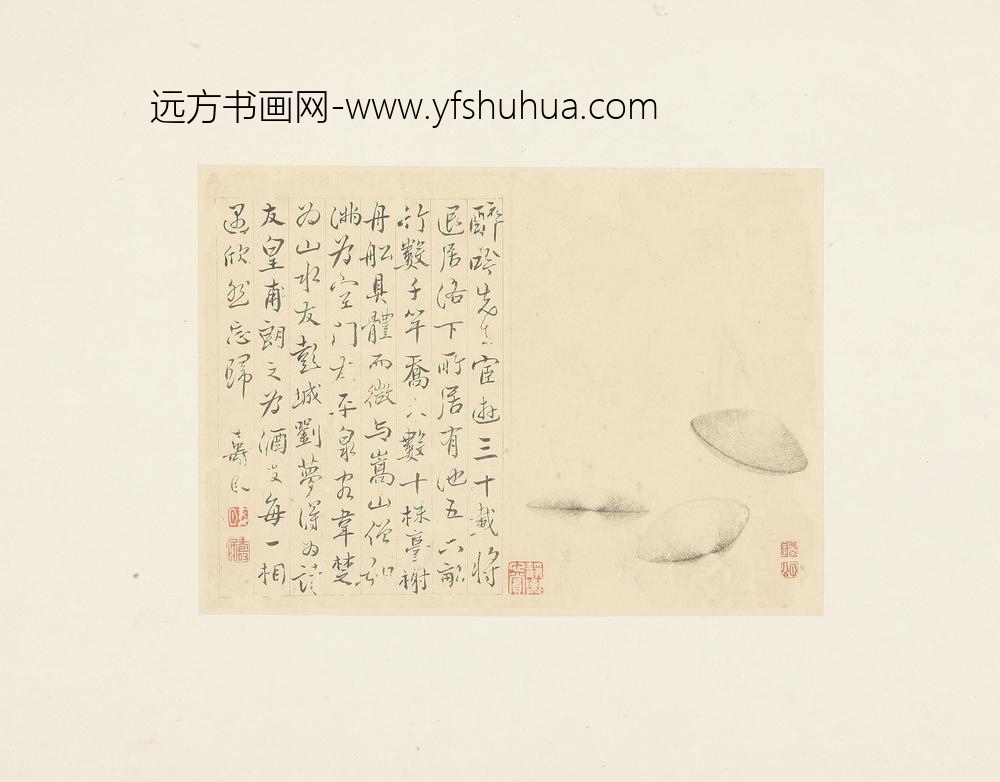 远方书画网-www.yfshuhua.com
醉吟先生宦遊三十載将
退居洛下所居有池五六畝
竹數千竿喬木數十株臺榭
舟船具體而微与嵩山僧如
滿为空门友平泉客韋楚
为山水友彭城劉夢得为詩
友皇甫朗之为酒友每一相
遇欣然忘歸
壽民